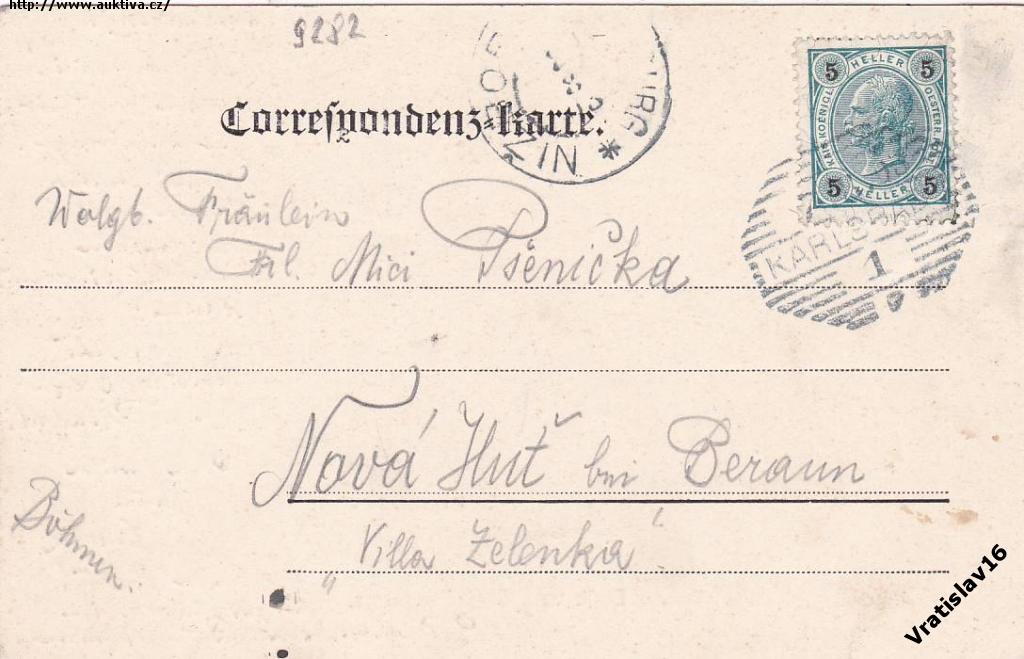 http://www.auktiva.cz/
9282
Correspondenz-Karte.
5 HELLER 5
KAIS. KOENIGL. OESTERR. POST
5 HELLER 5
NIZBOR
BURG *
KARLS
1
Wolgb. Fräulein
Frl. Mici Pšenička
Nová Huť bei Beraun
„Villa Zelenka“
Böhmen.
Vratislav16